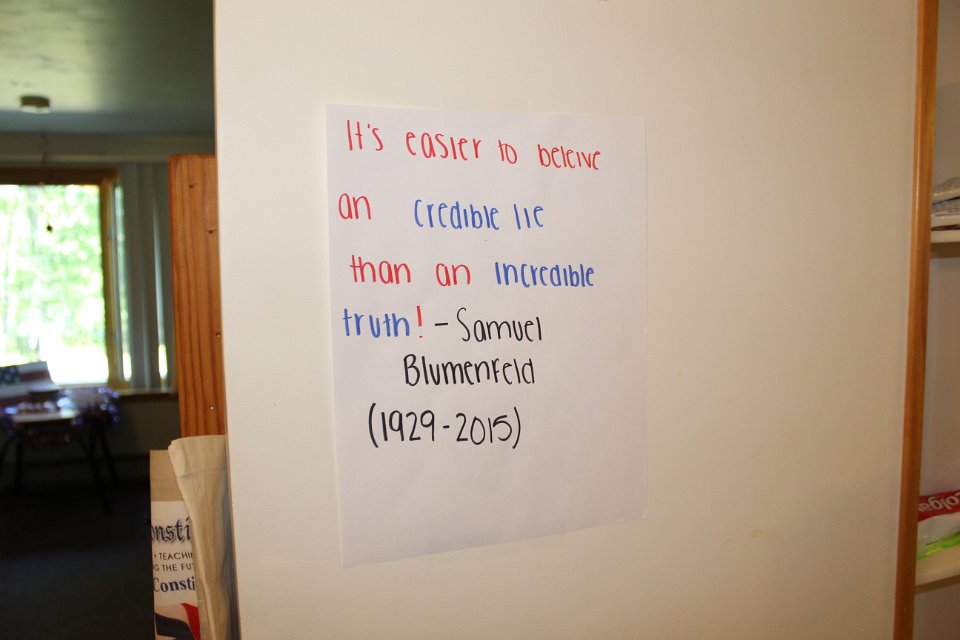 It's easier to beleive
an credible lie
than an incredible
truth! - Samuel
Blumenfeld
(1929-2015)
nsti
• TEACHI
G THE FU
Consti
olga